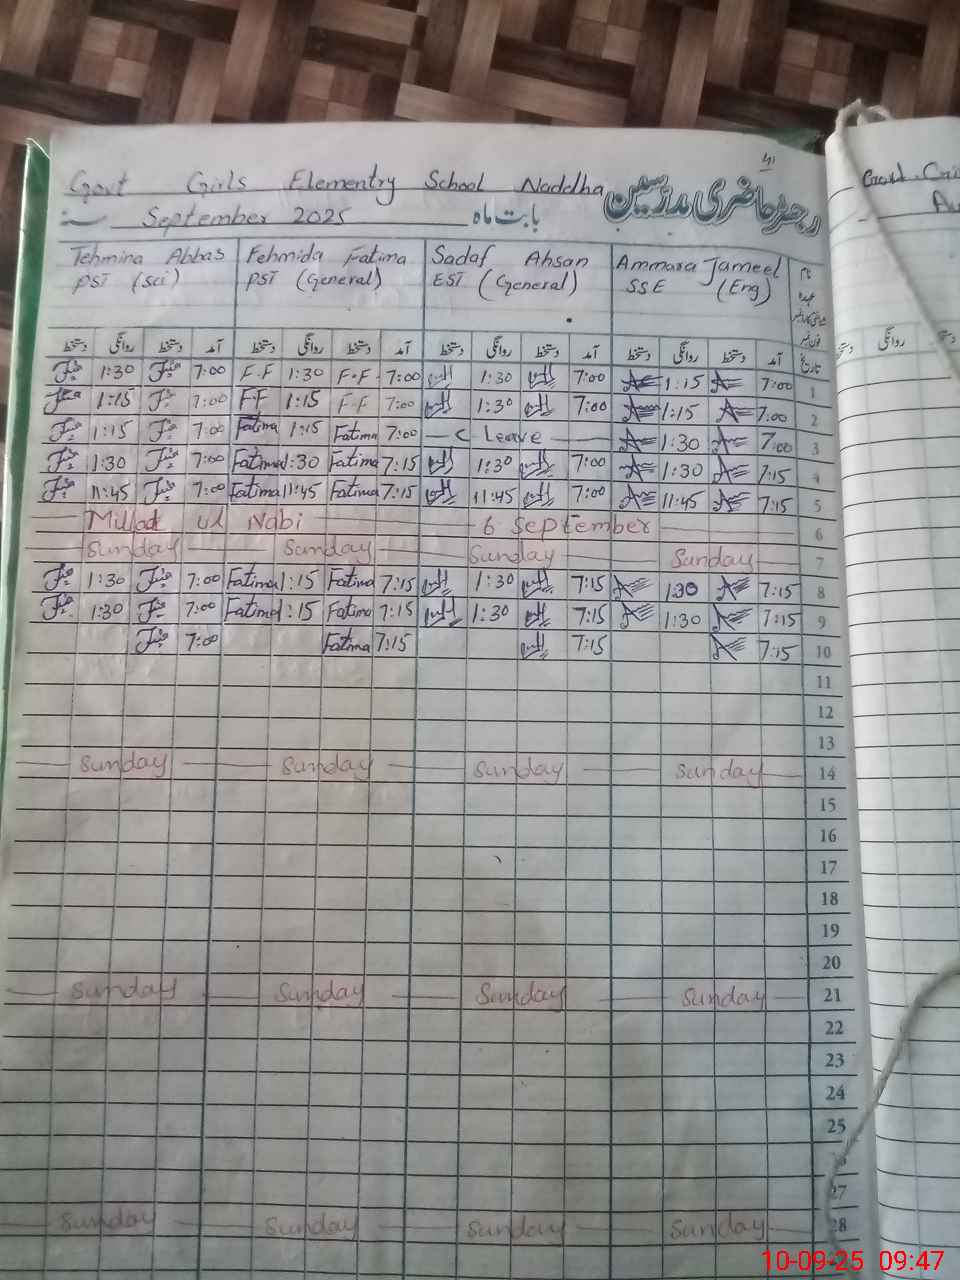 Govt Girls Elementry School Naddha
رجسٹر حاضری مدرسین
September 2025 بابت ماہ
Tehmina Abbas Fehmida Fatima Sadaf Ahsan Ammara Jameel
PST (Sci) PST (General) EST (General) SSE (Eng)
دستخط روانگی دستخط آمد دستخط روانگی دستخط آمد دستخط روانگی دستخط آمد دستخط روانگی دستخط آمد تاریخ
1:30 7:00 F.F 1:30 F.F. 7:00 1:30 7:00 1:15 7:00 1
1:15 7:00 FF 1:15 F-F 7:00 1:30 7:00 1:15 7:00 2
1:15 7:00 Fatima 1:15 Fatima 7:00 C Leave 1:30 7:00 3
1:30 7:00 Fatima 1:30 Fatima 7:15 1:30 7:00 1:30 7:15 4
11:45 7:00 Fatima 11:45 Fatima 7:15 11:45 7:00 11:45 7:15 5
Millad ul Nabi 6 September 6
Sunday Sunday Sunday Sunday 7
1:30 7:00 Fatima 1:15 Fatima 7:15 1:30 7:15 1:30 7:15 8
1:30 7:00 Fatima 1:15 Fatima 7:15 1:30 7:15 1:30 7:15 9
7:00 Fatima 7:15 7:15 7:15 10
11
12
13
Sunday Sunday Sunday Sunday 14
15
16
17
18
19
20
Sunday Sunday Sunday Sunday 21
22
23
24
25
27
Sunday Sunday Sunday Sunday 28
10-09-25 09:47